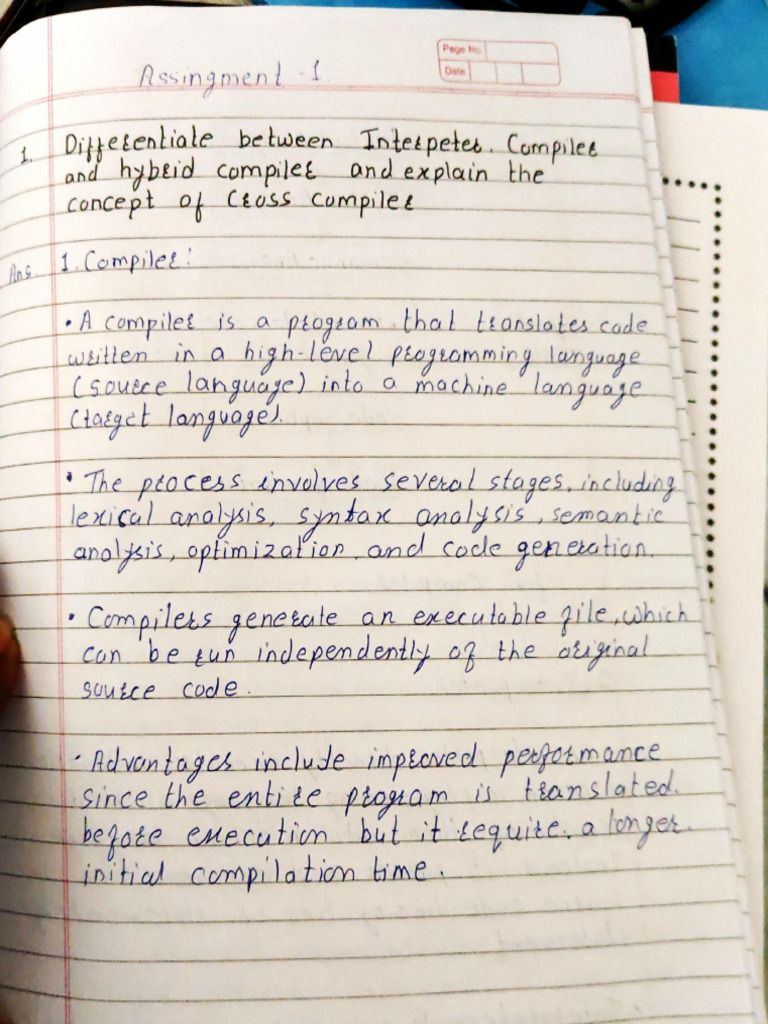 Page No.
Date
Assingment - 1.
1. Differentiate between Interpeter. Compiler
and hybrid compiler and explain the
concept of Cross Compiler
Ans. 1. Compiler:
• A compiler is a program that translates code
written in a high-level programming language
(source language) into a machine language
(target language).
• The process involves several stages, including
lexical analysis, syntax analysis, semantic
analysis, optimization, and code generation.
• Compilers generate an executable file, which
can be run independently of the original
source code.
• Advantages include improved performance
since the entire program is translated.
before execution but it require. a longer.
initial compilation time.